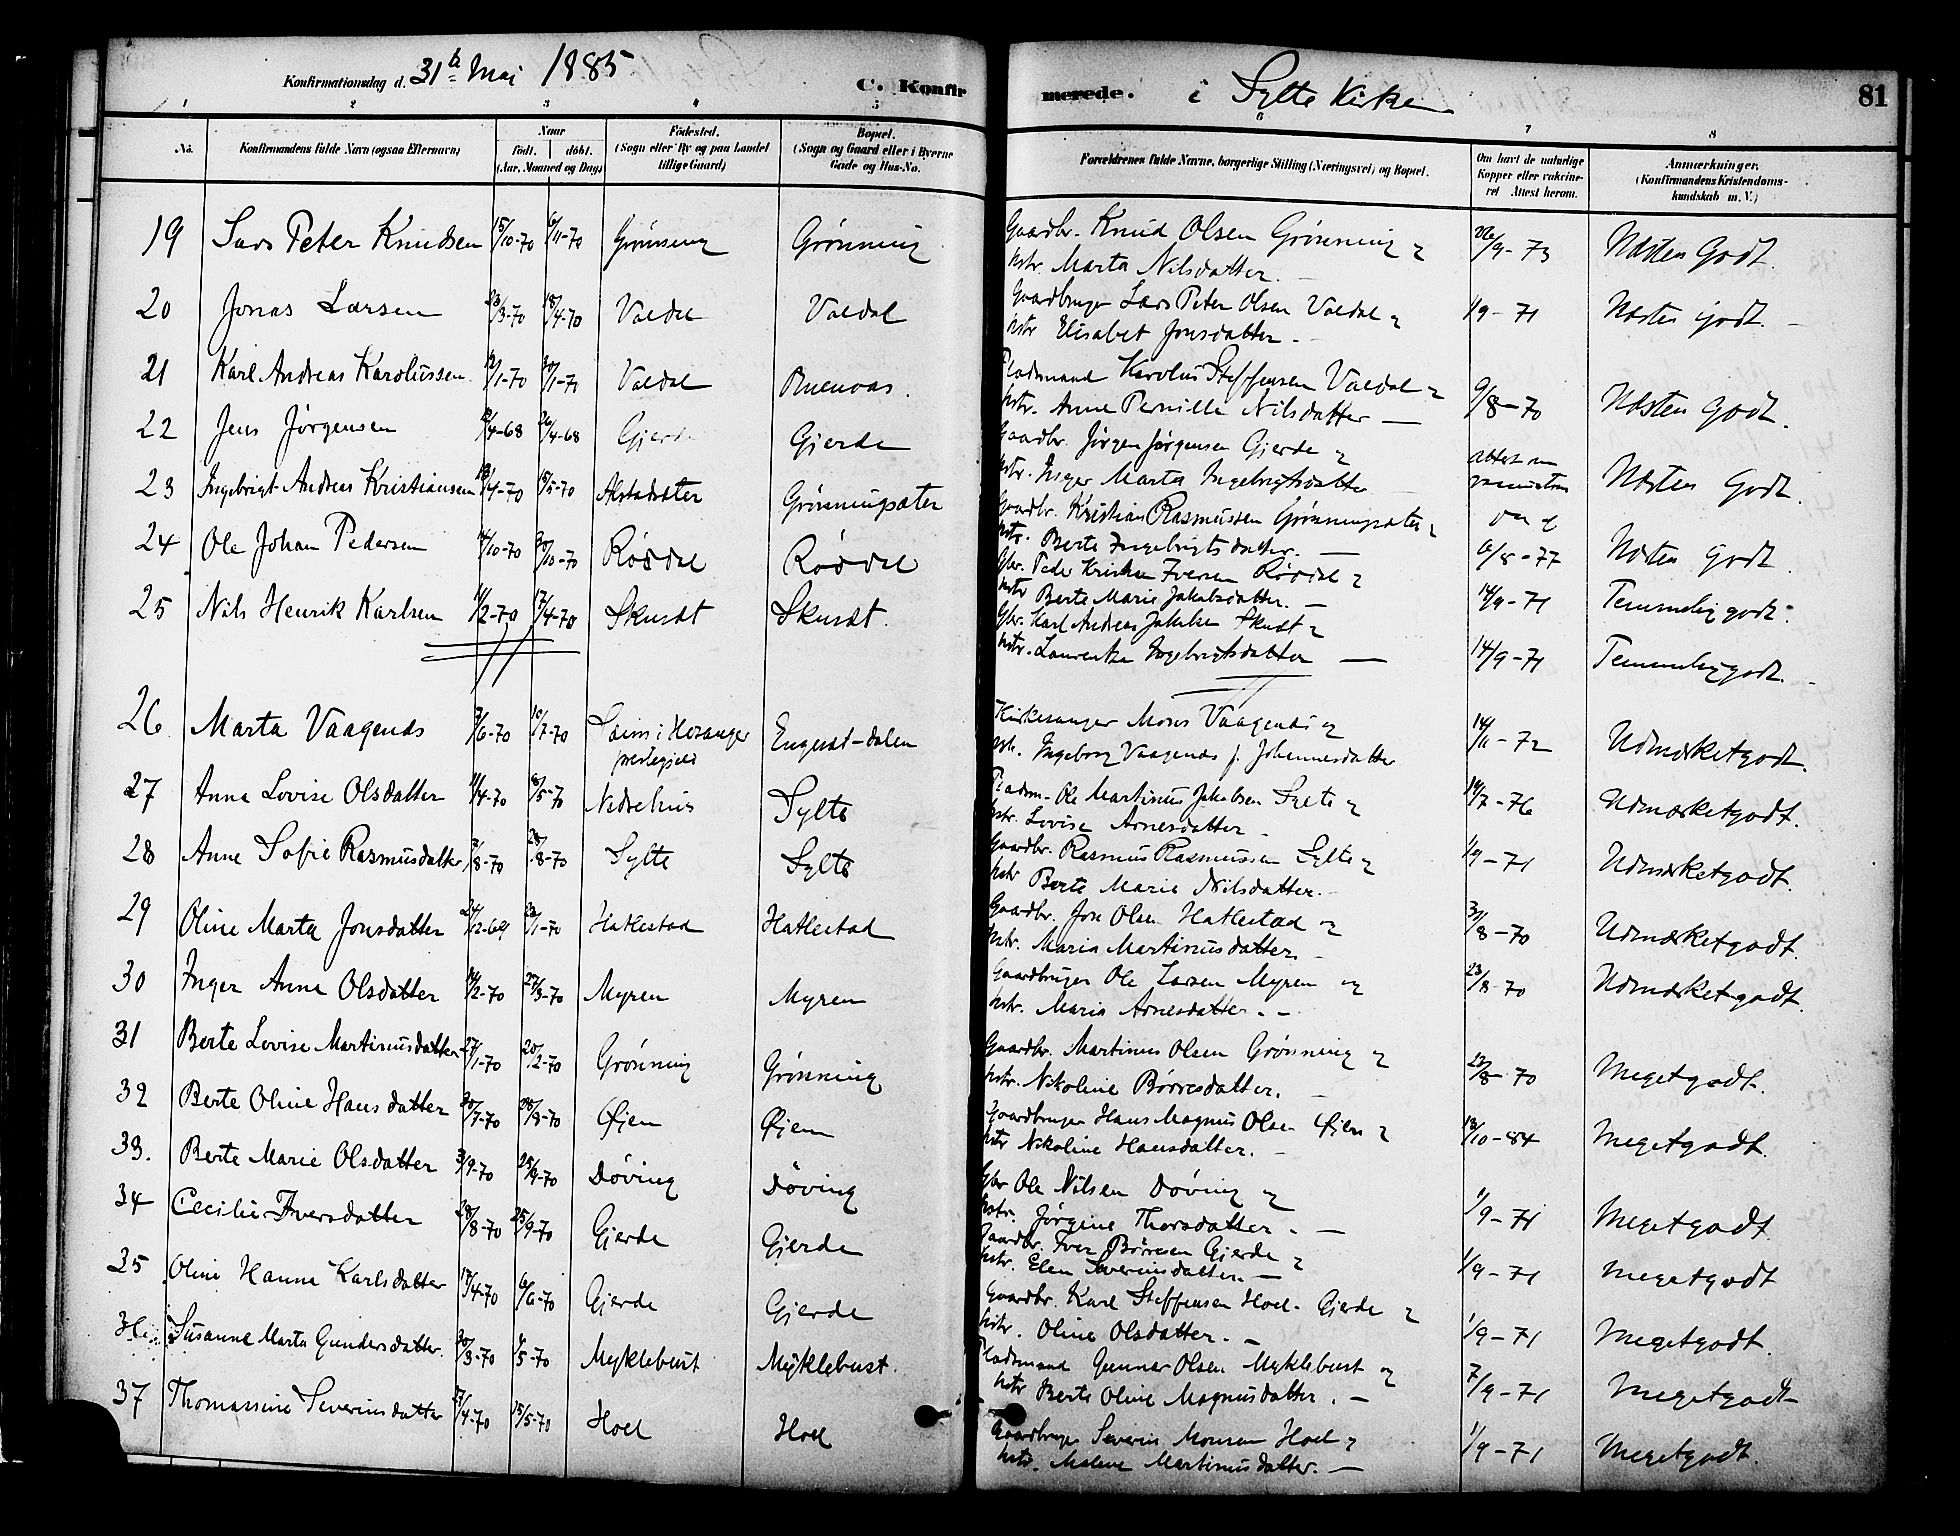 Konfirmationsdag d. 31te Mai 1885
C. Konfirmerede. i Sylte Kirke
81
1 2 3 4 5 6 7 8
No.
Konfirmandens fulde Navn (ogsaa Efternavn)
Naar
født. døbt.
(Aar, Maaned og Dag)
Fødested.
(Sogn eller By og paa Landet tillige Gaard)
Bopæl.
(Sogn og Gaard eller i Byerne Gade og Hus-No.
Forældrenes fulde Navne, borgerlige Stilling (Næringsvei) og Bopæl.
Om havt de naturlige Kopper eller vakcineret. Attest herom.
Anmærkninger.
(Konfirmandens Kristendomskundskab m. V.)
19 Lars Peter Knudsen 15/10-70 6/11-70 Grønning Grønning Gaardbr. Knud Olsen Grønning og 26/9-73 Næsten Godt.
Hstr. Marta Nilsdatter.
20 Jonas Larsen 23/3-70 18/4-70 Valdal Valdal Gaardbruger Lars Peter Olsen Valdal og 1/9-71 Næsten godt.
Hstr Elisabet Jonsdatter.
21 Karl Andreas Karolussen 12/1-70 30/1-70 Valdal Pladsmand Karolus Steffensen Valdal og 9/8-70 Næsten Godt.
Hstr. Anne Pernille Nilsdatter
22 Jens Jørgensen 12/4-68 26/4-68 Gjerde Gjerde Gaardbr. Jørgen Jørgensen Gjerde og Attest Næsten Godt.
Hstr. Inger Marta Ingebrigtsdatter
23 Ingebrigt Andreas Kristiansen 13/4-70 15/5-70 Alstadsæter Grønningsæter Gaardbr. Kristian Rasmussen Grønningsæter og
Hstr. Berte Ingebrigtsdatter. 6/8-77 Næsten godt
24 Ole Johan Pedersen 14/10-70 30/10-70 Rødal Rødal Gbr. Peder Iversen og 14/9-71 Temmelig godt.
Hstr Berte Marie Jakobsdatter.
25 Nils Henrik Karlsen 11/2-70 17/4-70 Gbr. Karl Andreas og
Hstr. Laurentze Ingebrigtsdatter 14/9-71 Temmelig godt.
26 Marta Vaagenæs 7/6-70 10/7-70 Seim i Hosanger prestegjeld Engeset-dalen Kirkesanger Mons Vaagenæs og 14/11-72 Udmærketgodt.
Hstr. Ingeborg Vaagenæs f. Johannesdatter
27 Anna Lovise Olsdatter 11/4-70 8/5-70 Nedrehus Sylte Pladsm. Ole Martinus Jakobsen Sylte og 14/7-76 Udmærketgodt.
Hstr. Lovise Arnesdatter
28 Anne Sofie Rasmusdatter 2/8-70 28/8-70 Sylte Sylte Gaardbr. Rasmus Rasmussen Sylte og 1/9-71 Udmærketgodt.
Hstr Berte Marie Nilsdatter.
29 Oline Marta Jonsdatter 24/12-69 23/1-70 Hatlestad Hatlestad Gaardbr. Jon Olsen Hatlestad og 31/8-70 Udmærketgodt.
Hstr. Maria Martinusdatter
30 Inger Anna Olsdatter 14/2-70 27/3-70 Myren Myren Gaardbruger Ole Larsen Myren og 23/8-70 Udmærketgodt.
Hstr. Maria Arnesdatter.
31 Berte Lovise Martinusdatter 27/1-70 20/2-70 Grønning Grønning Gaardbr. Martinus Olsen Grønning og 23/8-70 Megetgodt.
Hstr. Nikoline Børresdatter.
32 Berte Oline Hansdatter 30/7-70 28/8-70 Øjen Øjen Gaardbruger Hans Magnus Olsen Øjen og 13/10-84 Megetgodt.
Hstr Nikoline Hansdatter.
33. Berte Marie Olsdatter 3/9-70 25/9-70 Døving Døving Gbr Ole Nilsen Døving og 1/9-71 Megetgodt
Hstr. Jørgine Thorsdatter.
34 Cecilie Iversdatter 28/8-70 25/9-70 Gjerde Gjerde Gaardbr. Iver Børresen Gjerde og 1/9-71 Megetgodt
Hstr. Elen Severinsdatter.
35 Oline Hanna Karlsdatter 17/4-70 6/6-70 Gjerde Gjerde Gaardbr. Karl Steffensen Hoel-Gjerde og 1/9-71 Megetgodt.
Hstr. Oline Olsdatter.
36 Susanne Marta Gundersdatter. 30/3-70 4/5-70 Myklebust Myklebust. Pladsmand Gunnar Olsen Myklebust og 7/9-71 Megetgodt
Hstr Berte Oline Magnusdatter.
37 Thomassine Severinsdatter 27/4-70 15/5-70 Hoel Hoel Gaardbruger Severin Monsen Hoel og 1/9-71 Megetgodt.
Hstr. Malene Martinusdatter.